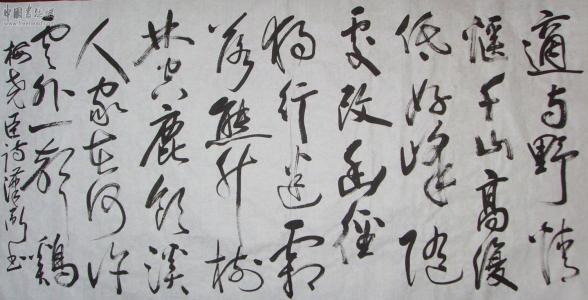 適与野情
愜千山高復
低好峰随
處改幽徑
獨行迷霜
落熊升樹
林空鹿飲溪
人家在何許
雲外一聲鷄
梅堯臣詩漢书